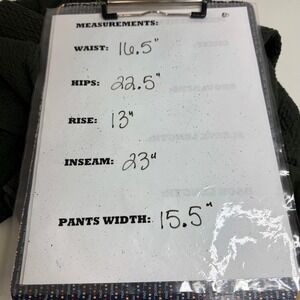 MEASUREMENTS:
WAIST: 16.5"
HIPS: 22.5"
RISE: 13"
INSEAM: 23"
PANTS WIDTH: 15.5"